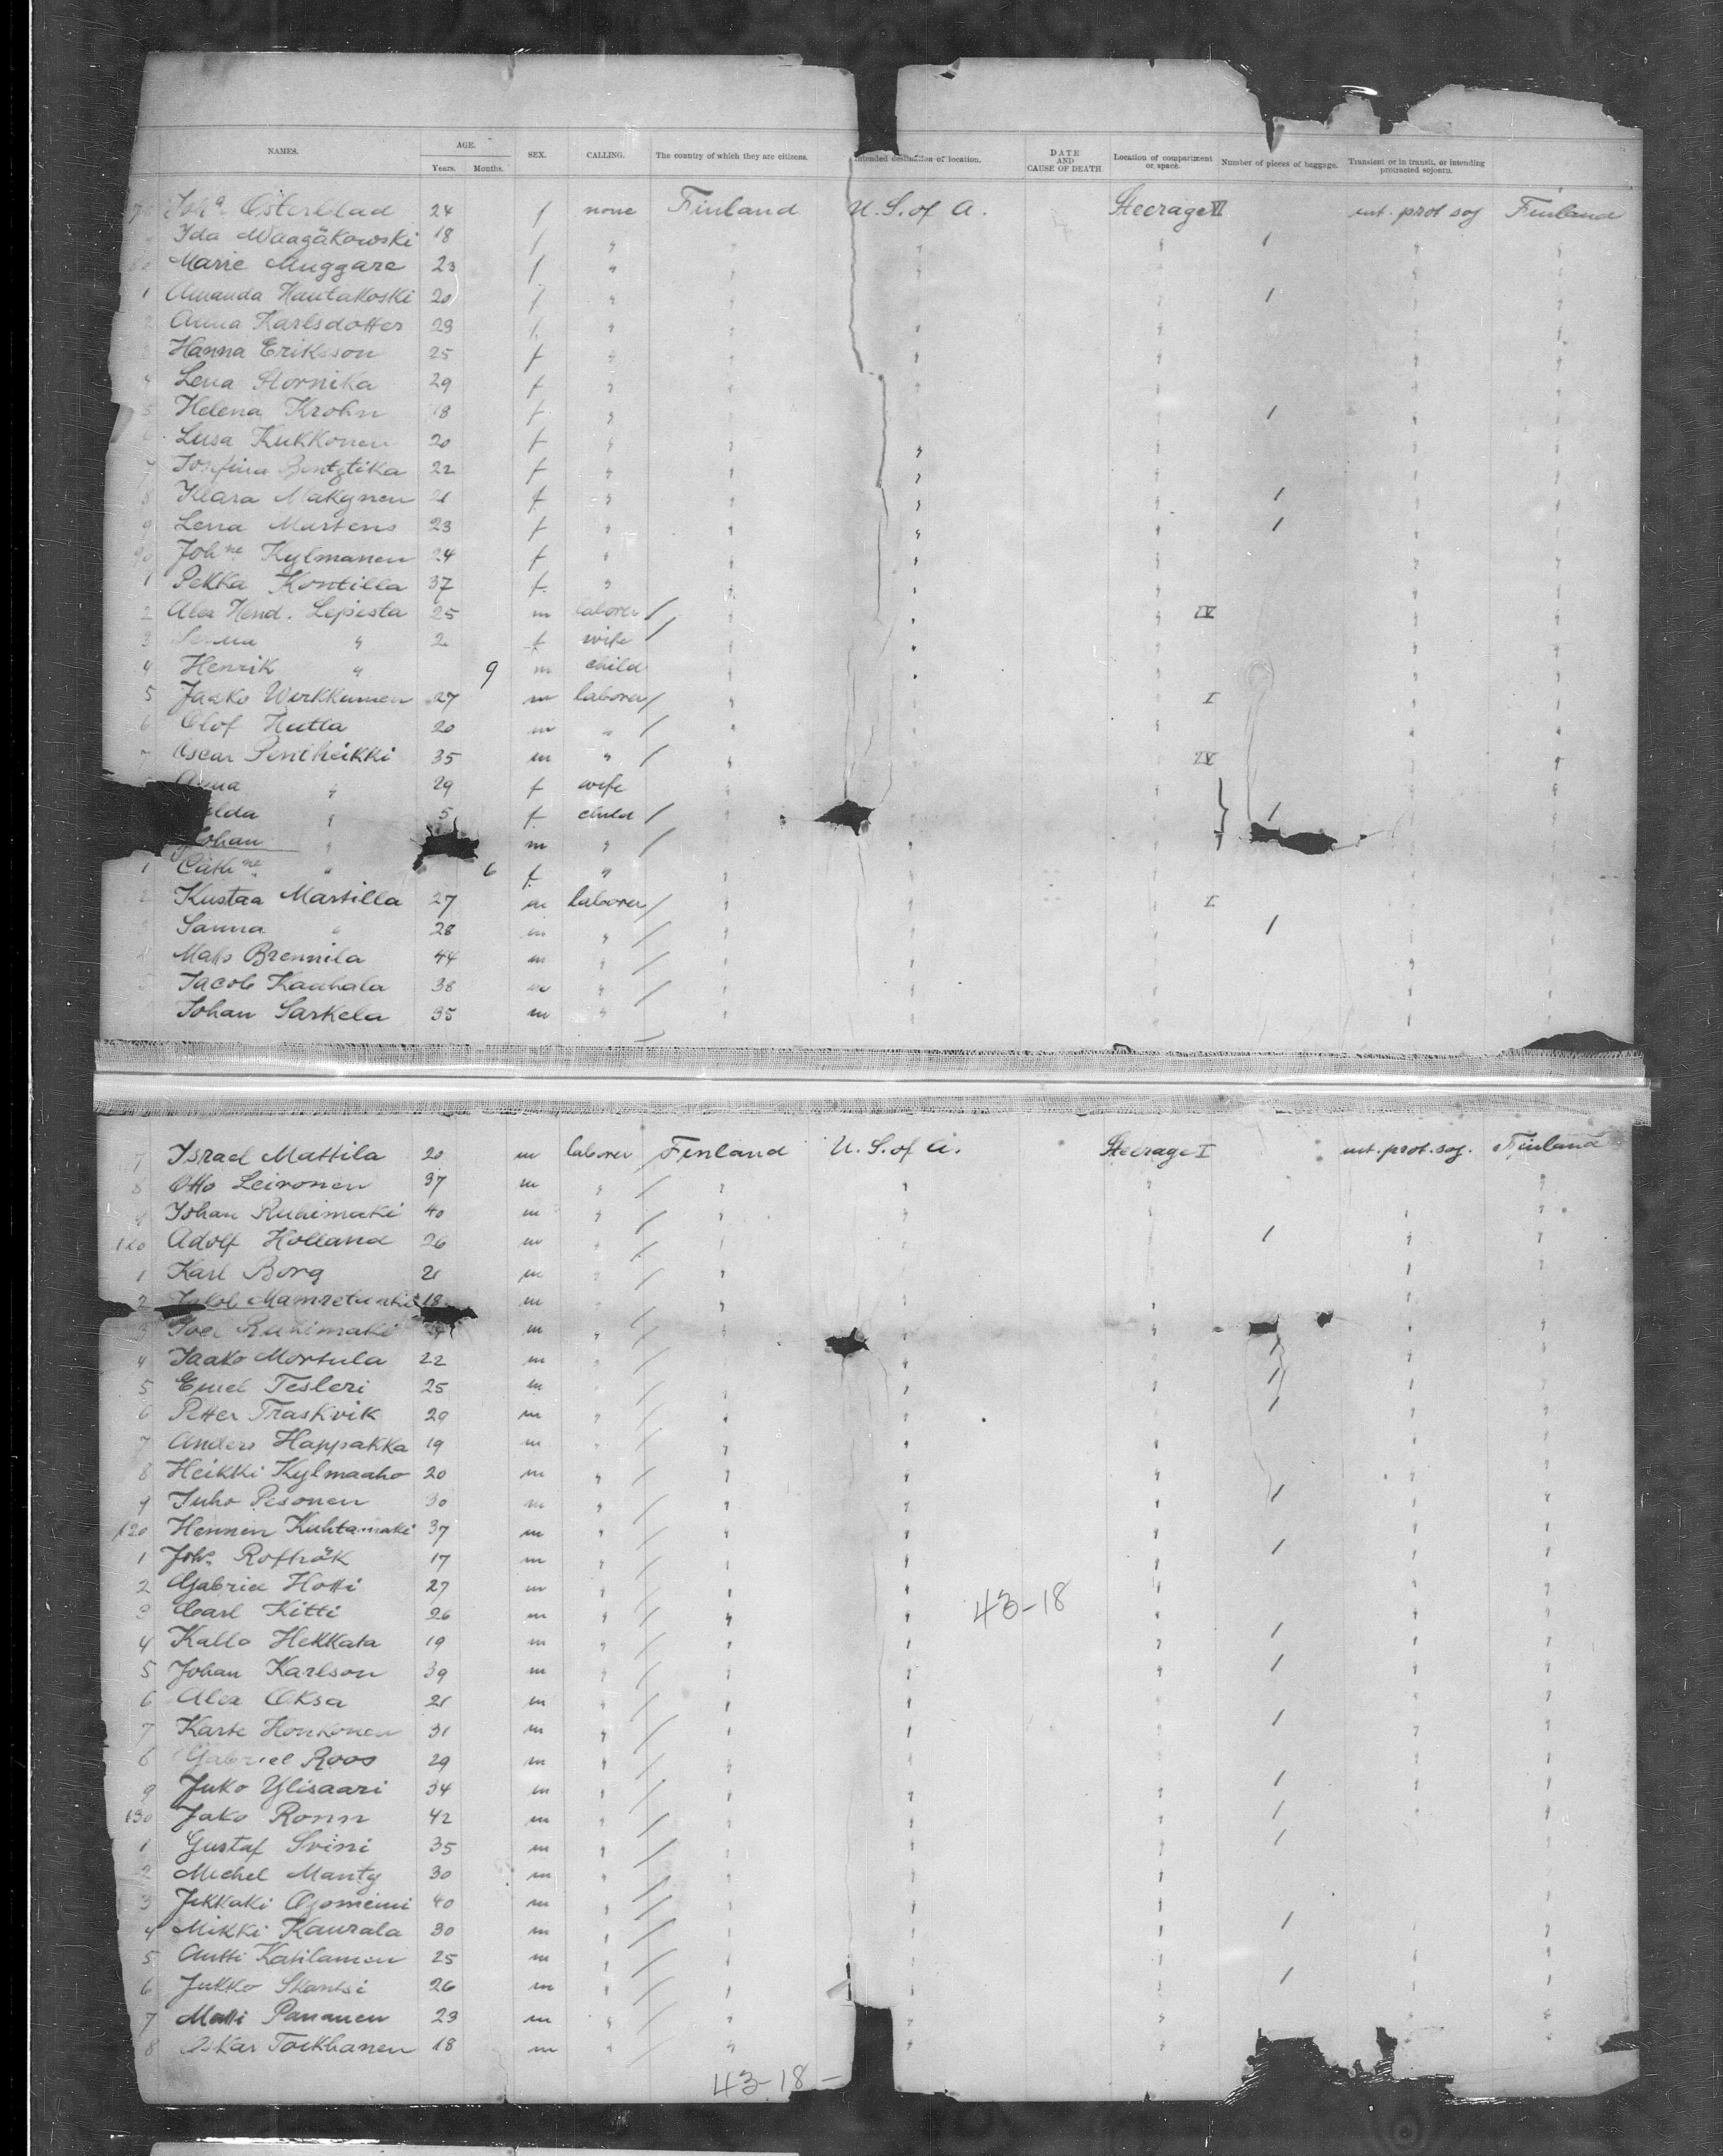 NAMES. AGE. Years. Months. SEX. CALLING. The country of which they are citizens. Intended destination of location. DATE AND CAUSE OF DEATH. Location of compartment or space. Number of pieces of baggage. Transient or in transit, or intending protracted sojourn.
Joha Österblad 24 f none Finland U. S. of A. Steerage VI int. prot soj Finland
Ida 18 f " " " " / " "
Marie Muggare 23 f " " " " " "
1 Amanda Hautakoski 20 f " " " " / " "
2 Anna Karlsdotter 23 f " " " " " "
3 Hanna Eriksson 25 f " " " " " "
4 Lena Stornika 29 f " " " " " "
5 Helena Krohn 18 f " " " " / " "
6 Lusa Kukkonen 20 f " " " " " "
7 Josefina 22 f " " " " " "
8 Klara Makynen 21 f " " " " / " "
9 Lena Martens 23 f " " " " / " "
90 Johne Kylmanen 24 f " " " " " "
1 Pekka Kontilla 37 f " " " " " "
2 Alex Hend. Lepista 25 m laborer / " " " IV " "
3 " 2 f wife / " " " " "
4 Henrik " 9 m child " " " " "
5 Jaako Wirkkunen 27 m laborer / " " " I " "
6 Olof Hutta 20 m " / " " " " "
7 Oscar Pentheikki 35 m " / " " " IV " "
" 29 f wife " " " " "
" 5 f child / " " " / " "
Johan " m " / " " " " "
1 Cathne " 6 f " " " " " "
2 Kustaa Martilla 27 m laborer / " " " I " "
3 Sanna " 28 m " / " " " / " "
4 Matts Brennila 44 m " / " " " " "
5 Jacob Kauhala 38 m " / " " " " "
Johan Sarkela 35 m " " " " " "
7 Israel Mattila 20 m laborer Finland U. S. of A. Steerage I int. prot. soj. Finland
8 Otto Leironen 37 m " / " " " "
9 Johan Ruhimaki 40 m " / " " " " "
110 Adolf Holland 26 m " / " " " / " "
1 Karl Borg 21 m " / " " " " "
2 18 m " " " " " "
3 Joel Ruhimaki m " / " " " " "
4 Jaako Mortula 22 m " / " " " / " "
5 Emel Tesleri 25 m " / " " " / " "
6 Petter Traskvik 29 m " / " " " / " "
7 Anders Happakka 19 m " / " " " " "
8 Heikki Kylmaaho 20 m " / " " " " "
9 Juho Pesonen 30 m " / " " " / " "
120 Hennen Kuhtamaki 37 m " / " " " " "
1 Johs Rofhök 17 m " / " " " / " "
2 Gabriel Hotti 27 m " / " " " " "
3 Carl Kitti 26 m " / " " 43-18 " " "
4 Kalle Hekkala 19 m " / " " " / " "
5 Johan Karlson 39 m " / " " " / " "
6 Alex Oksa 21 m " / " " " " "
7 Karte Honkonen 31 m " / " " " / " "
8 Gabriel Roos 29 m " / " " " " "
9 Juko Ylisaari 34 m " / " " " / " "
130 Jako Ronn 42 m " / " " " / " "
1 Gustaf Svini 35 m " / " " " / " "
2 Michel Manty 30 m " / " " " " "
3 Jukkaki 40 m " / " " " " "
4 Mikki Kaurala 30 m " / " " " / " "
5 Antti Katilainen 25 m " / " " " " "
6 Jukko Skantsi 26 m " / " " " / " "
7 Matti Pananen 23 m " / " " " " "
8 Oskar Torkhanen 18 m " / " " " " "
43-18-